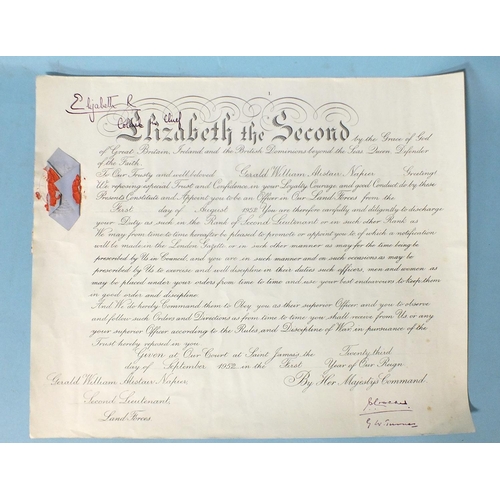 Elizabeth R
Colonel in Chief
Elizabeth the Second by the Grace of God
of Great Britain, Ireland and the British Dominions beyond the Seas Queen, Defender
of the Faith.
To Our Trusty and well beloved Gerald William Alistair Napier Greeting!
We reposing especial Trust and Confidence in your Loyalty Courage and good Conduct do by these
Presents Constitute and Appoint you to be an Officer in Our Land Forces from the
First day of August 1952 You are therefore carefully and diligently to discharge
your Duty as such in the Rank of Second Lieutenant or in such other Rank as
We may from time to time hereafter be pleased to promote or appoint you to of which a notification
will be made in the London Gazette or in such other manner as may for the time being be
prescribed by Us in Council, and you are in such manner and on such occasions as may be
prescribed by Us to exercise and well discipline in their duties such officers, men and women as
may be placed under your orders from time to time and use your best endeavours to keep them
in good order and discipline.
And We do hereby Command them to Obey you as their superior Officer, and you to observe
and follow such Orders and Directions as from time to time you shall receive from Us or any
your superior Officer according to the Rules and Discipline of War in pursuance of the
Trust hereby reposed in you.
Given at Our Court at Saint James's the Twenty third
day of September 1952 in the First Year of Our Reign
Gerald William Alistair Napier, By Her Majesty's Command.
Second Lieutenant,
Land Forces.